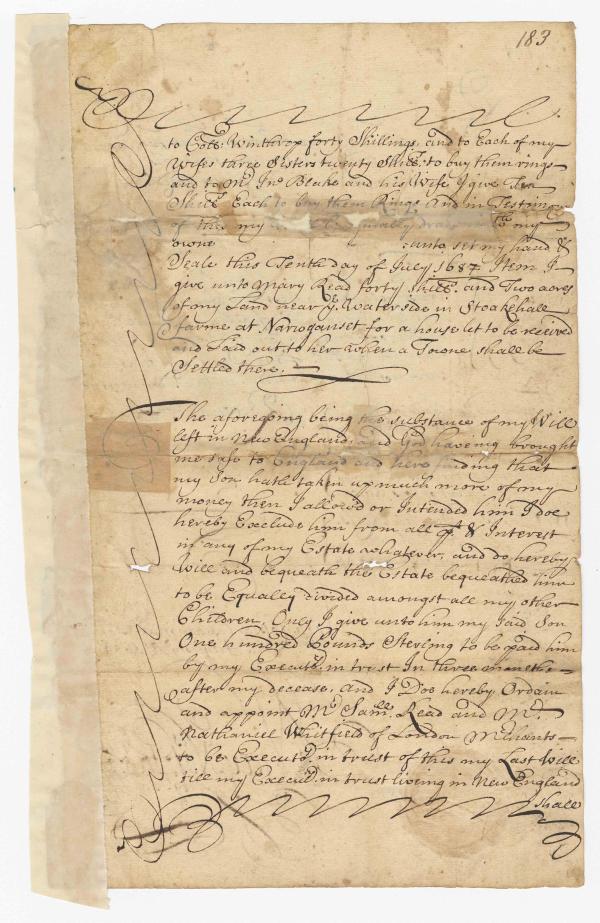 183
to Coll: Winthrop forty Shillings, and to Each of my
Wifes three Sisters twenty Shills: to buy them rings
and to Mr Jno Blake and his Wife I give Ten
Shills Each to buy them Rings And in Testimo
of this my to my
owne unto set my hand &
Seale this Tenth day of July 1687 Item I
give unto Mary Read forty shills: and Two acres
of my Land near ye Water side in
farme at Narroganset for a house lot to be received
and Laid out to her when a Towne shall be
Settled there.
The aforegoing being the substance of my Will
left in New England, and God haveing brought
me safe to England and here finding that
my Son hath taken up much more of my
money then I allow'd or Intended him I doe
hereby Exclude him from all & Interest
in any of my Estate whatever, and do hereby
Will and bequeath the Estate bequeathed him
to be Equally divided amongst all my other
Children, Only I give unto him my said Son
One hundred Pounds Sterling to be paid him
by my Execut:rs in trust In three months
after my decease, and I Doe hereby Ordain
and appoint Mr Samll. Read and Mr.
Nathaniel Whitfield of London Mrchants
to be Execut:rs in trust of this my Last Will
till my Execut:rs in trust living in New England
shall